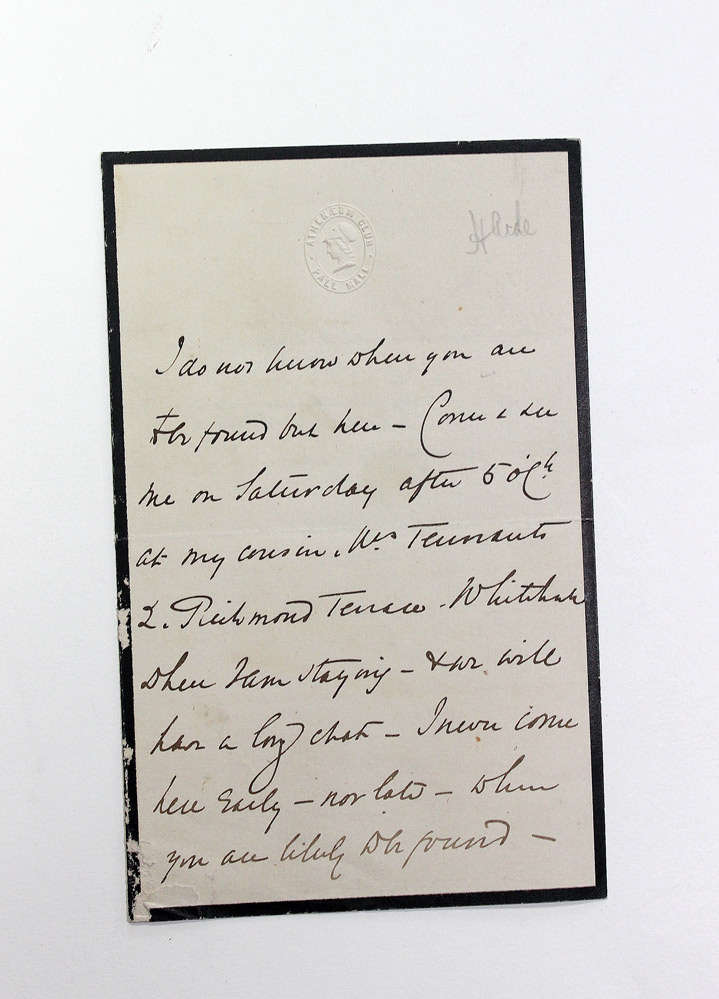 ATHENÆUM CLUB
PALL MALL
I do not know when you are
to be found but here – Come & see
me on Saturday after 5 o'Ck
at my cousin, Mrs Tennants
2. Richmond Terrace. Whitehall
where I am staying – & we will
have a long chat – I never come
here early – nor late – when
you are likely to be found –